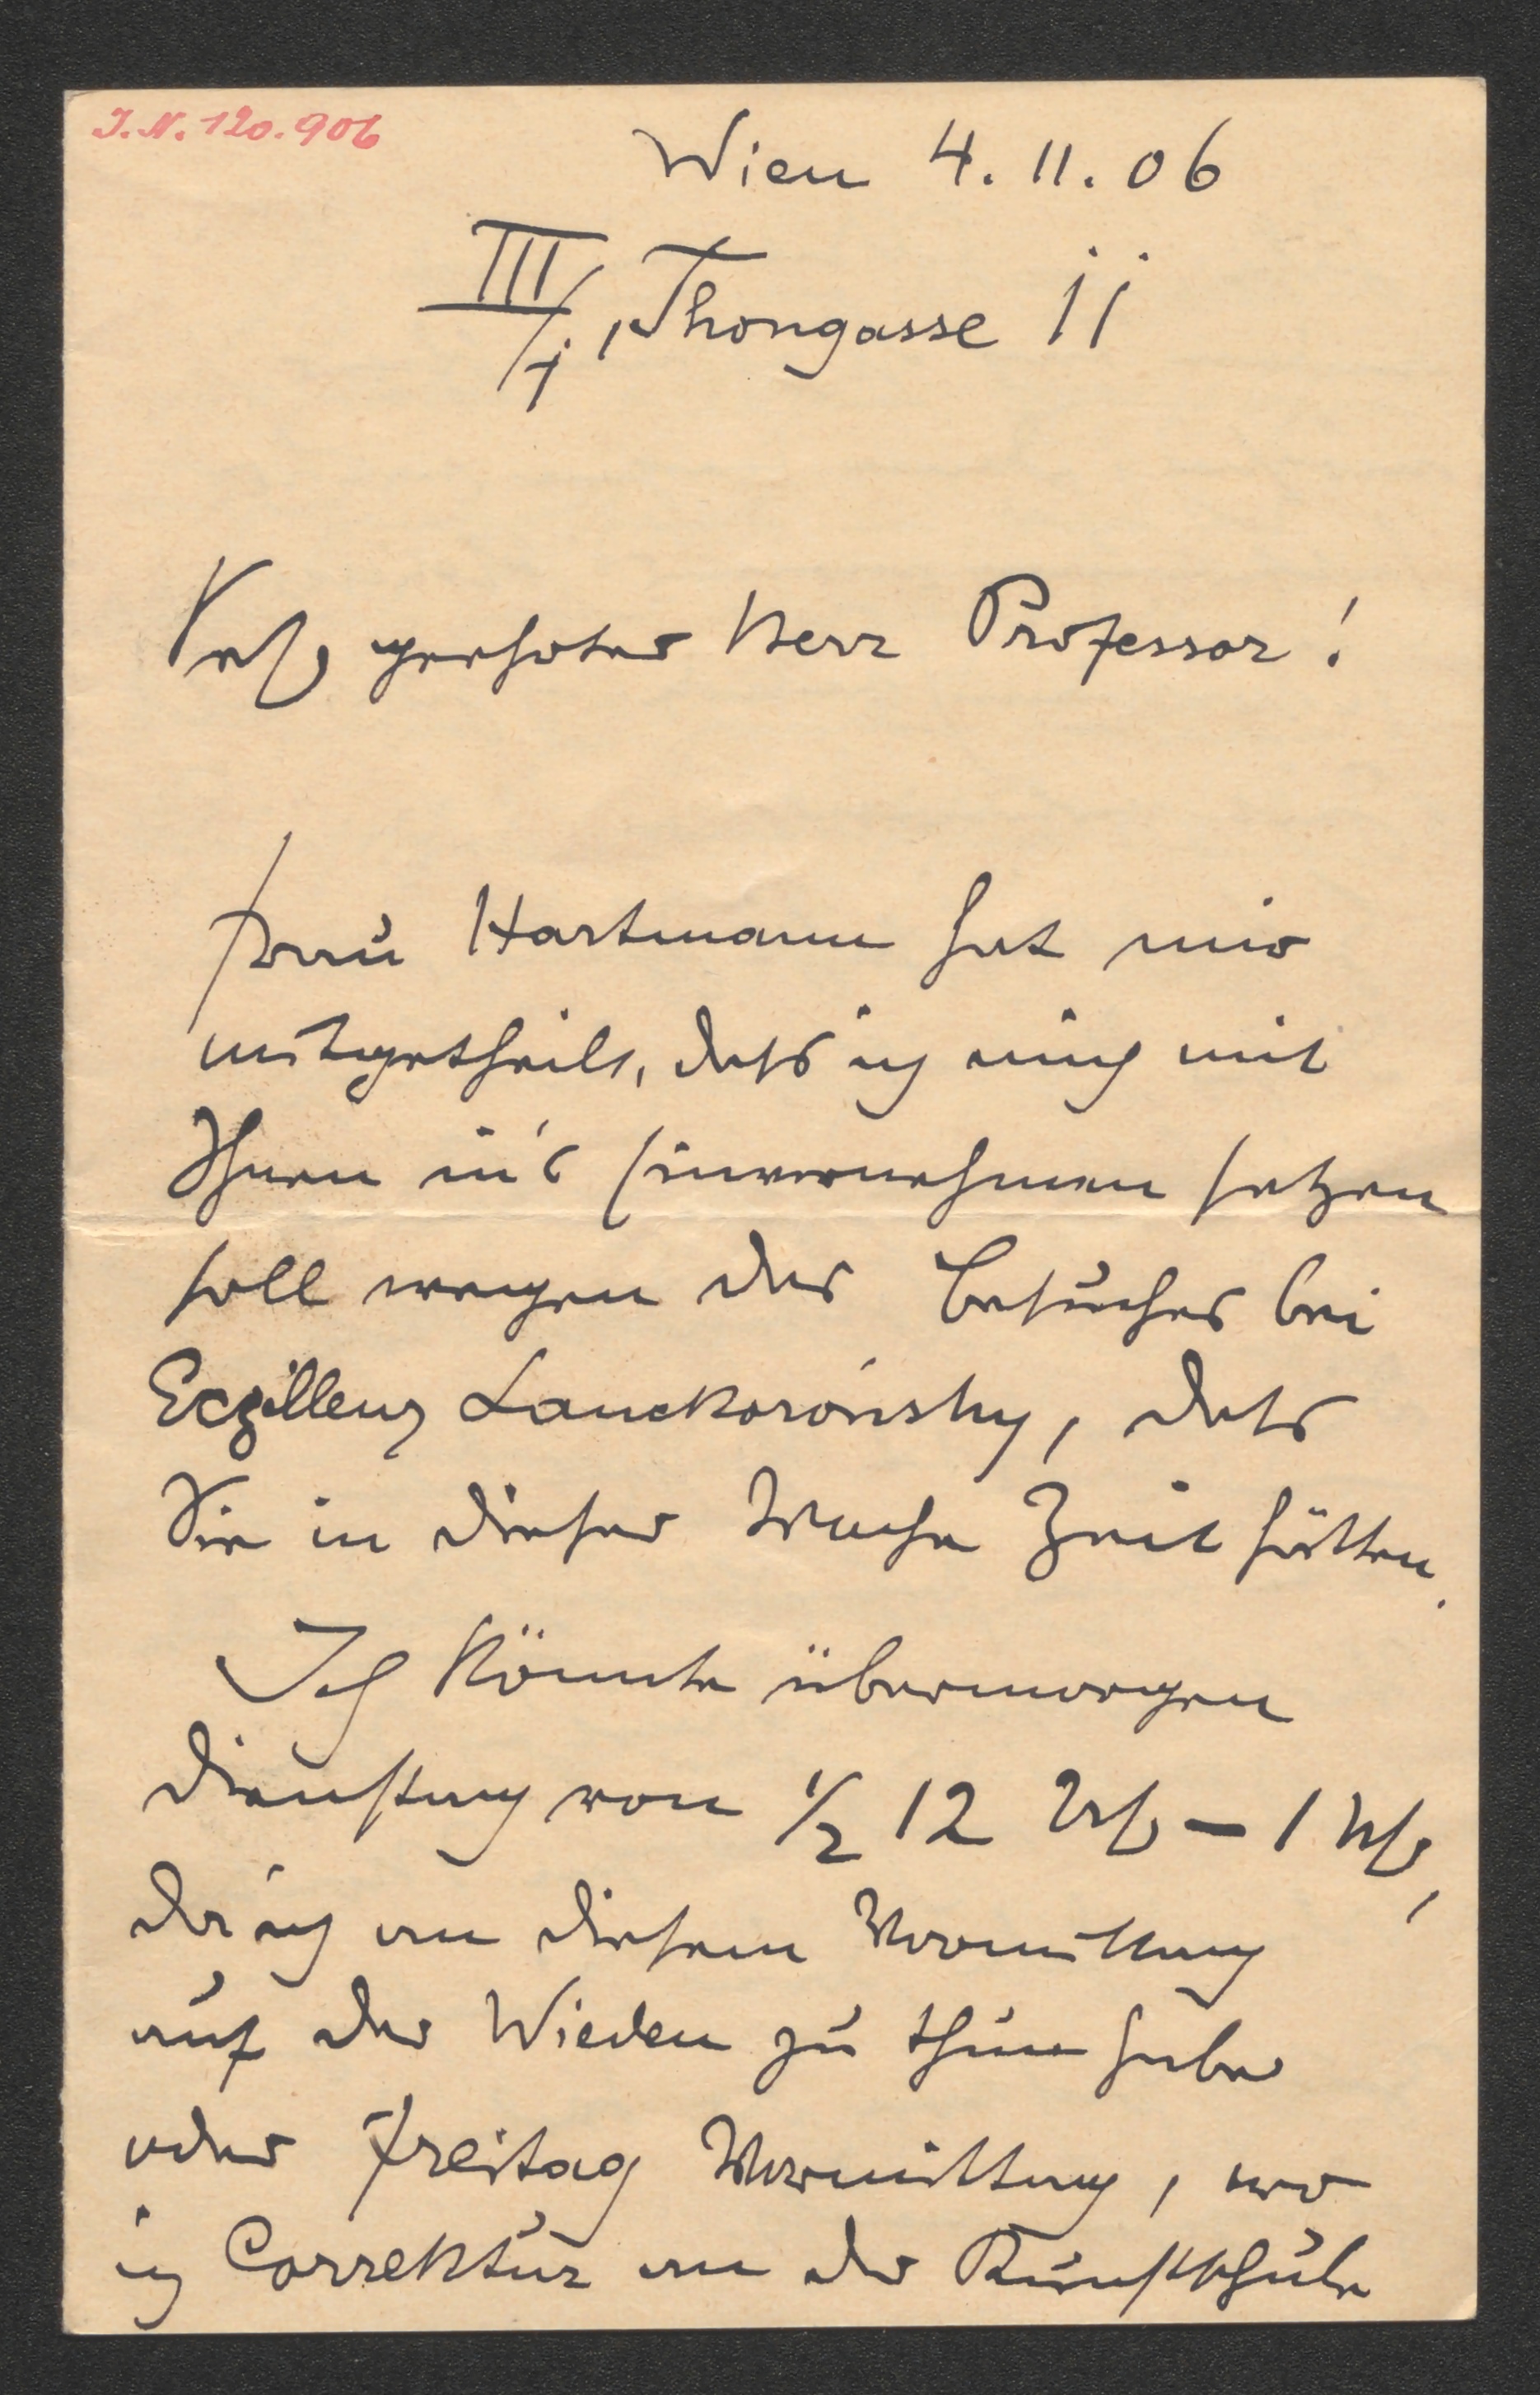 I.N. 120.906
Wien 4. 11. 06
III/1, Thongasse 11
Sehr geehrter Herr Professor!
Frau Hartmann hat mir
mitgetheilt, dass ich mich mit
Ihnen in's Einvernehmen setzen
soll wegen des Besuches bei
Exzillenz Lanckoroński, dass
Sie in dieser Woche Zeit hätten.
Ich könnte übermorgen
Dienstag von ½ 12 Uhr – 1 Uhr,
da ich an diesem Vormittag
auf der Wieden zu thun habe
oder Freitag Vormittag, wo
ich Correktur an der Kunstschule